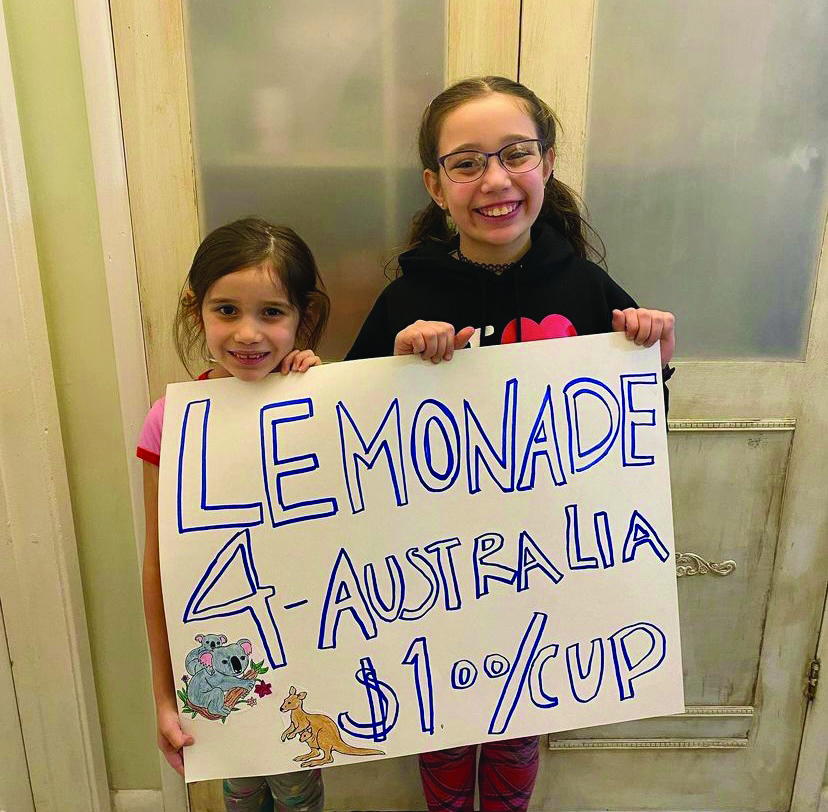 LEMONADE
4-AUSTRALIA
$1⁰⁰/CUP